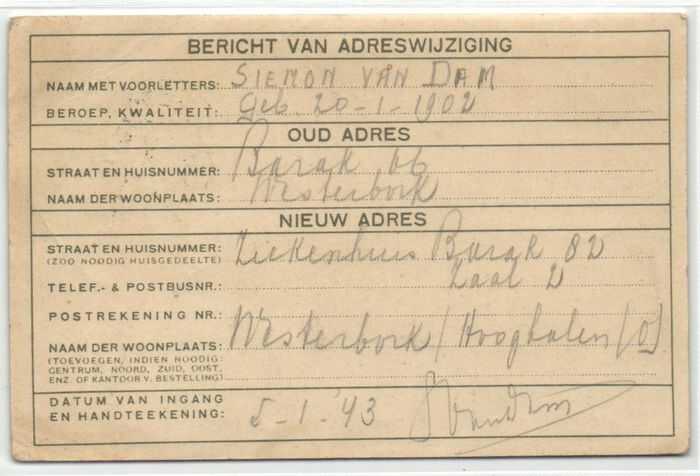 BERICHT VAN ADRESWIJZIGING
NAAM MET VOORLETTERS: SIEMON VAN DAM
BEROEP, KWALITEIT: Geb. 20-1-1902
OUD ADRES
STRAAT EN HUISNUMMER: Barak 66
NAAM DER WOONPLAATS: Westerbork
NIEUW ADRES
STRAAT EN HUISNUMMER: Ziekenhuis Barak 82
(ZOO NOODIG HUISGEDEELTE)
TELEF.- & POSTBUSNR.: Zaal 2
POSTREKENING NR.:
NAAM DER WOONPLAATS: Westerbork / Hooghalen (O)
(TOEVOEGEN, INDIEN NOODIG:
CENTRUM, NOORD, ZUID, OOST,
ENZ. OF KANTOOR V. BESTELLING)
DATUM VAN INGANG
EN HANDTEEKENING: 5-1-'43 SvanDam